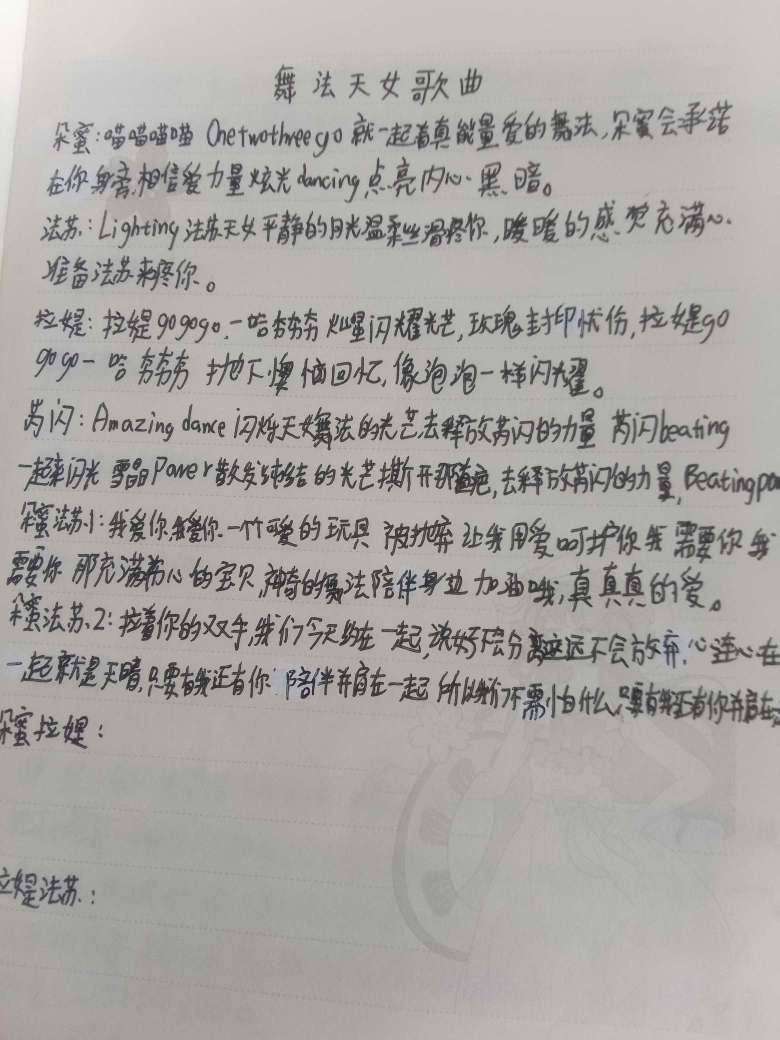 舞法天女歌曲
朵蜜:喵喵喵喵 One two three go 就一起看真能量爱的舞法,朵蜜会承诺
在你身旁,相信爱力量炫光dancing点亮内心黑暗。
法苏:Lighting 法苏天女平静的月光温柔丝滑疼你,暖暖的感觉充满心
准备法苏来疼你。
拉媞:拉媞gogogo,一哈夯夯夯 灿星闪耀光芒,玫瑰封印忧伤,拉媞go
gogo一哈夯夯夯 抛下懊恼回忆,像泡泡一样闪耀。
芮闪:Amazing dance 闪烁天女舞法的光芒去释放芮闪的力量 芮闪beating
一起来闪光 雪晶Power散发纯结的光芒撕开那,去释放芮闪的力量,Beating
朵蜜法苏1:我爱你,我爱你,一个可爱的玩具 被抛弃 让我用爱呵护你我需要你我
需要你 那充满心的宝贝,神奇的舞法陪伴身边 加油哦,真真真的爱。
朵蜜法苏2:拉着你的双手,我们今天约在一起,说好不会分离永远不会放弃,心连心在
一起就是天晴,只要有我还有你 陪伴并肩在一起 所以我们不需怕什么,只要有我还有你并肩在
朵蜜拉媞:
拉媞法苏: